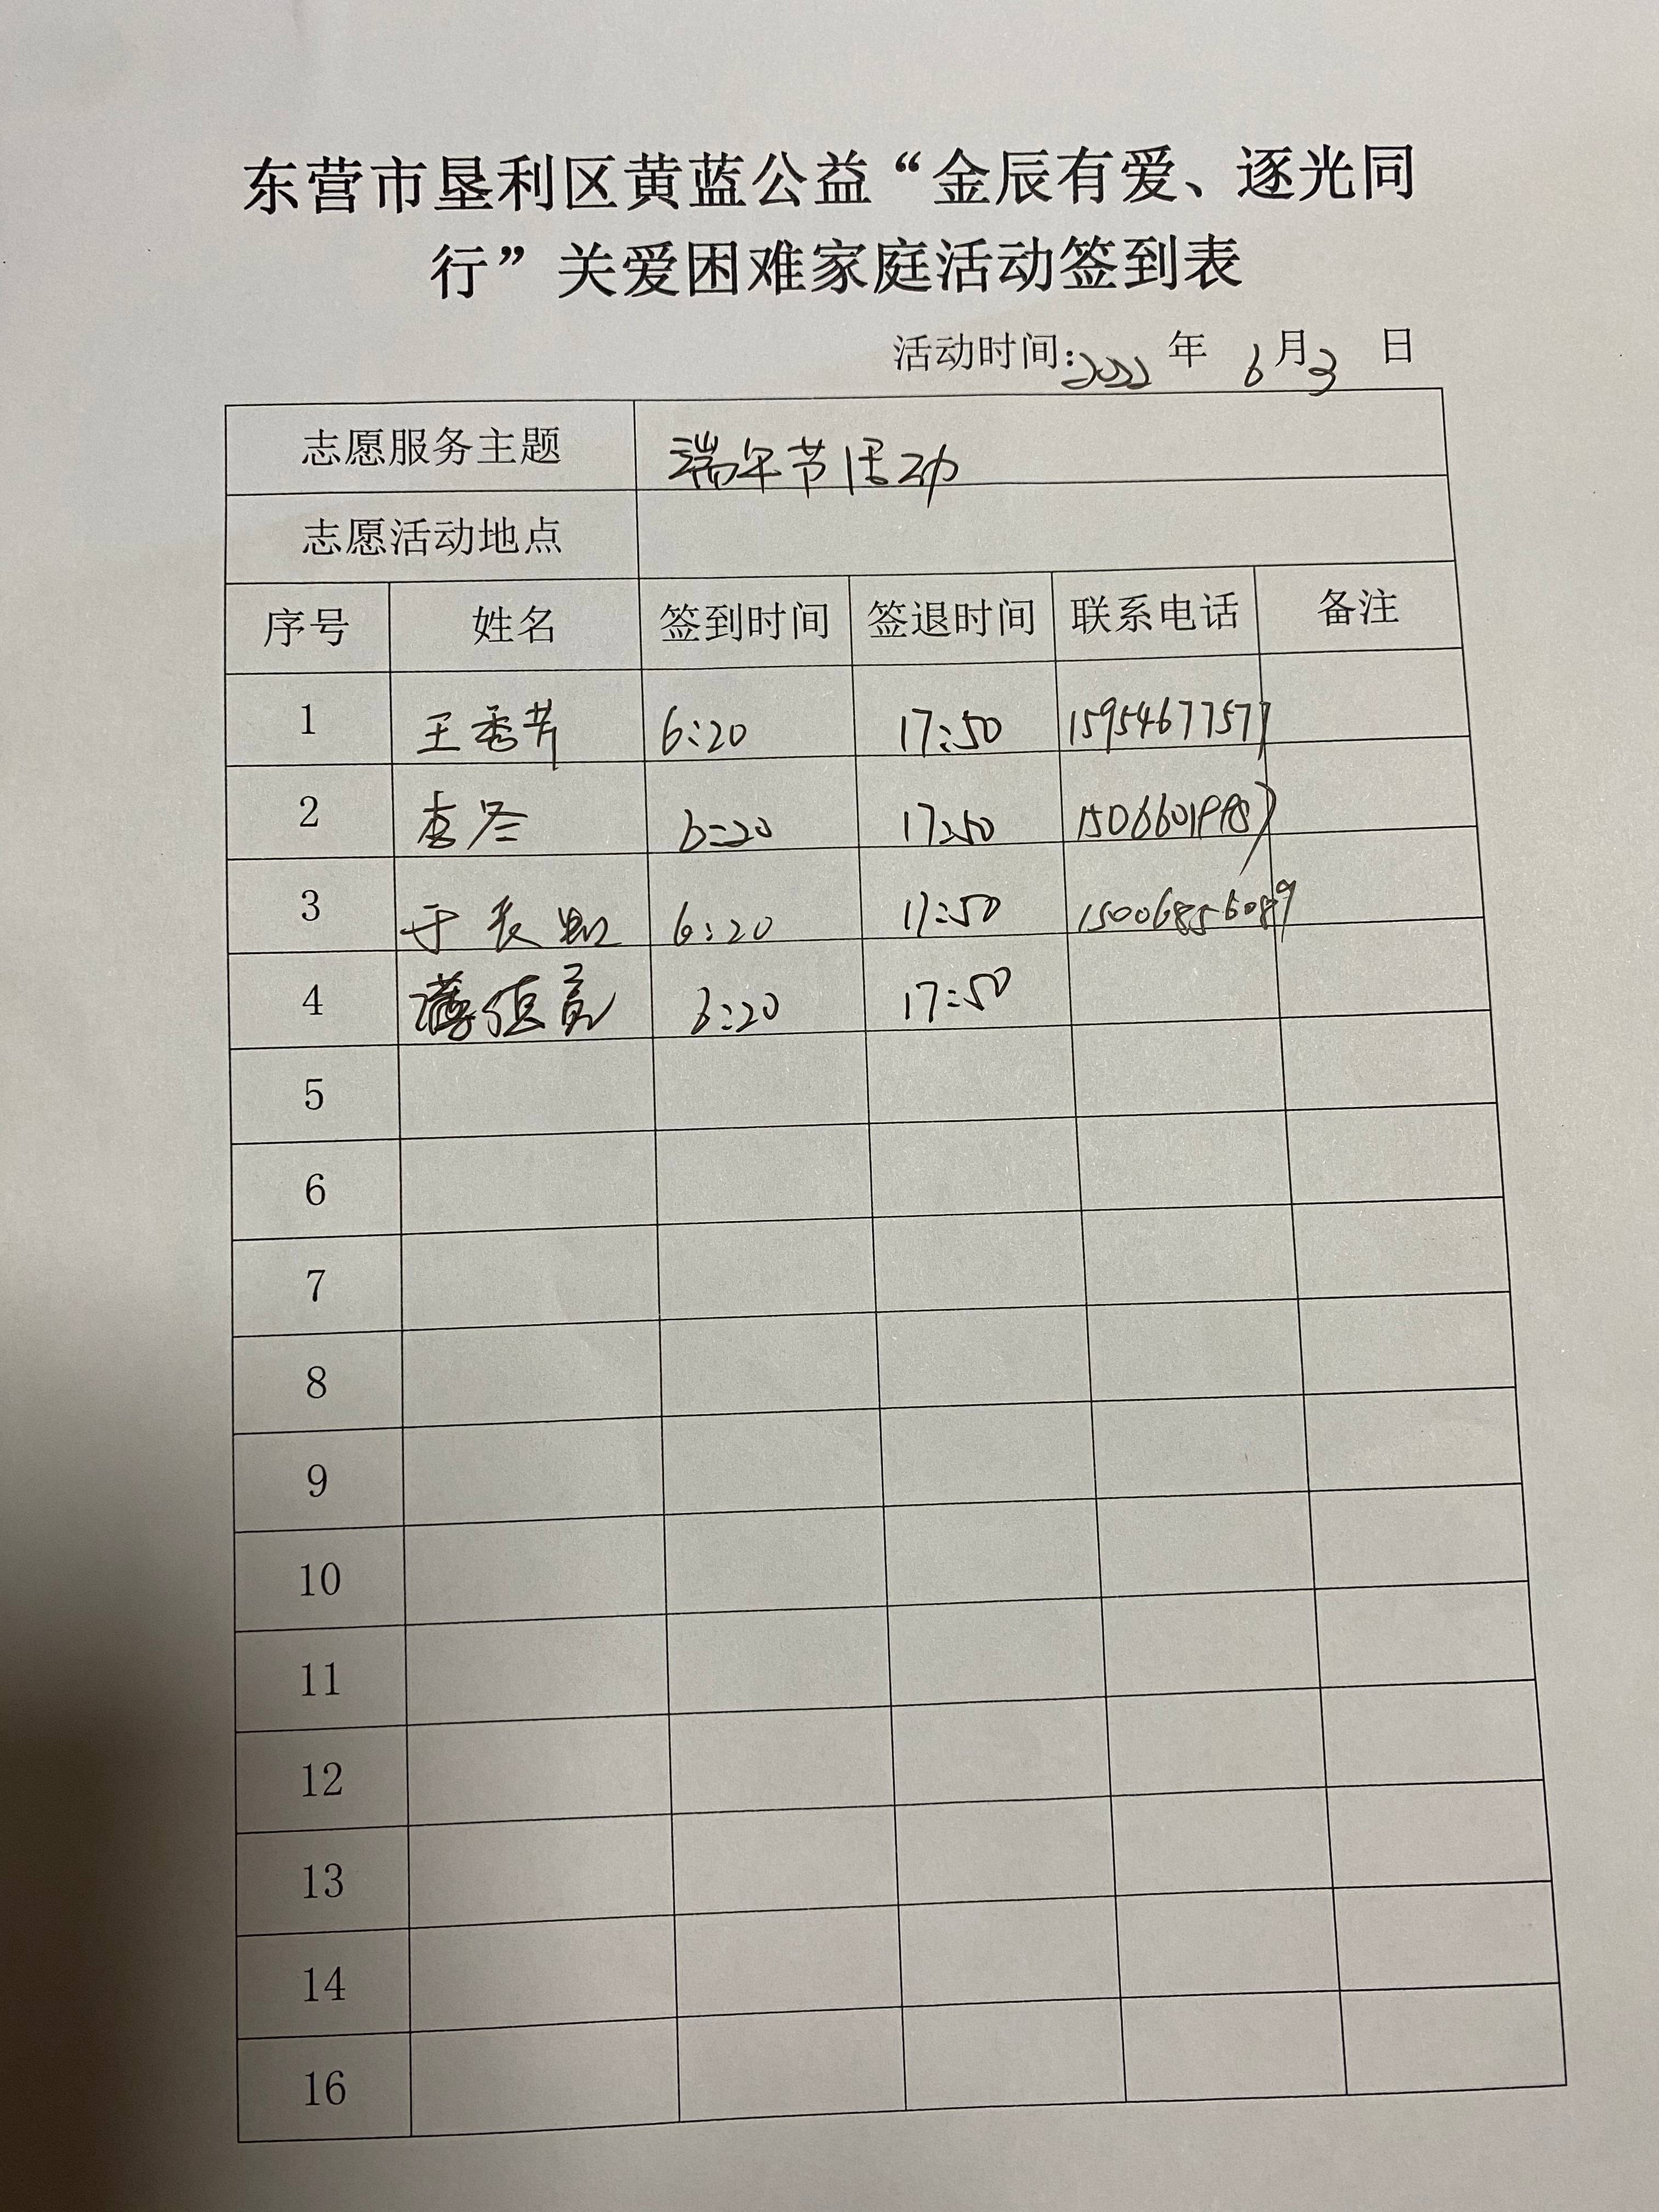 东营市垦利区黄蓝公益“金辰有爱、逐光同
行”关爱困难家庭活动签到表
活动时间:2022 年 6月3 日
志愿服务主题 端午节活动
志愿活动地点
序号 姓名 签到时间 签退时间 联系电话 备注
1 王秀芹 6:20 17:50 15954677577
2 李冬 6:20 17:50
3 于长 6:20 17:50
4 6:20 17:50
5
6
7
8
9
10
11
12
13
14
16